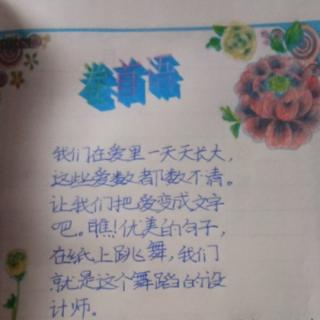 卷首语
我们在爱里一天天长大，
这些爱数都数不清。
让我们把爱变成文字
吧。瞧！优美的句子，
在纸上跳舞，我们
就是这个舞蹈的设
计师。